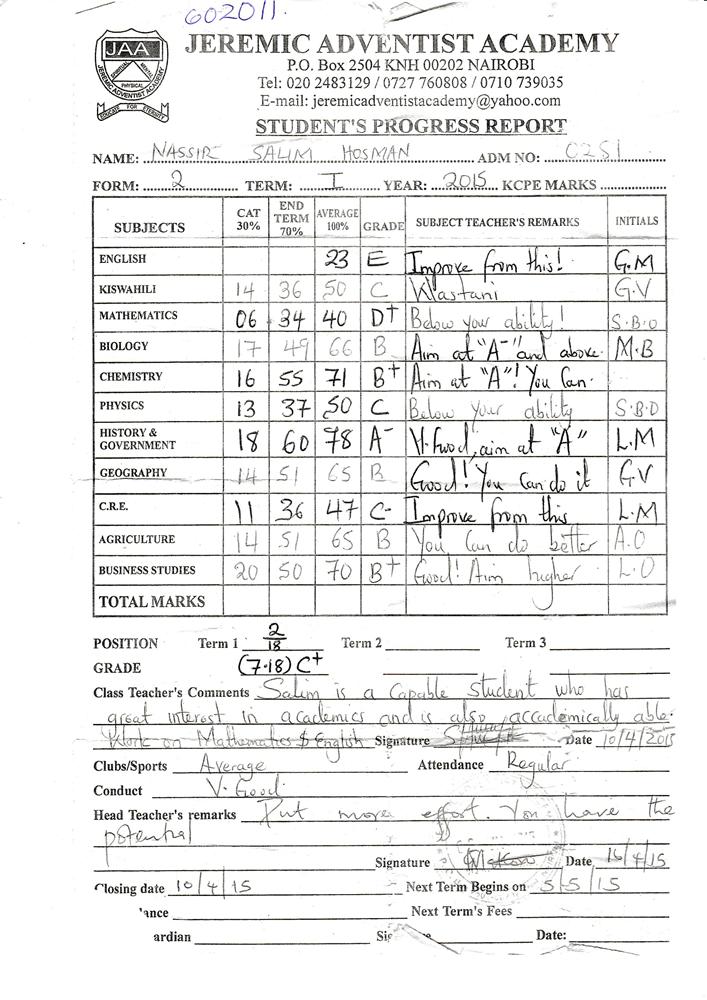 602011.
JAA
JEREMIC ADVENTIST ACADEMY
SPIRITUAL
MENTAL
PHYSICAL
EDUCATE FOR ETERNITY
JEREMIC ADVENTIST ACADEMY
P.O. Box 2504 KNH 00202 NAIROBI
Tel: 020 2483129 / 0727 760808 / 0710 739035
E-mail: jeremicadventistacademy@yahoo.com
STUDENT'S PROGRESS REPORT
NAME: NASSIR SALIM HOSMAN ADM NO: 0251
FORM: 2 TERM: I YEAR: 2015 KCPE MARKS
SUBJECTS CAT 30% END TERM 70% AVERAGE 100% GRADE SUBJECT TEACHER'S REMARKS INITIALS
ENGLISH 23 E Improve from this! G.M
KISWAHILI 14 36 50 C Wastani G.V
MATHEMATICS 06 34 40 D+ Below your ability! S.B.O
BIOLOGY 17 49 66 B Aim at "A-" and above M.B
CHEMISTRY 16 55 71 B+ Aim at "A"! You Can.
PHYSICS 13 37 50 C Below your ability S.B.O
HISTORY & GOVERNMENT 18 60 78 A- V.Good, aim at "A" L.M
GEOGRAPHY 14 51 65 B Good! You Can do it G.V
C.R.E. 11 36 47 C- Improve from this L.M
AGRICULTURE 14 51 65 B You Can do better A.O
BUSINESS STUDIES 20 50 70 B+ Good! Aim higher L.O
TOTAL MARKS
POSITION Term 1 2/18 Term 2 Term 3
GRADE (7.18) C+
Class Teacher's Comments Salim is a Capable student who has
great interest in academics and is also accademically able.
Work on Mathematics & English Signature Date 10/4/2015
Clubs/Sports Average Attendance Regular
Conduct V.Good
Head Teacher's remarks Put more effort. You have the
potential
Signature Date 16/4/15
Closing date 10/4/15 Next Term Begins on 5/5/15
ance Next Term's Fees
ardian Sig Date: